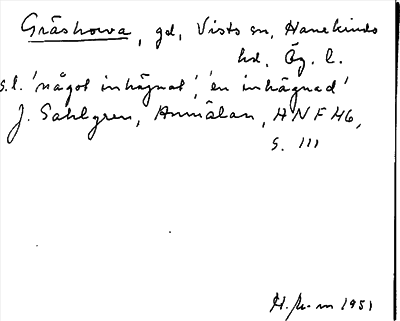 Gräshorva, gd, Vists sn, Hanekinds
hd, Ög. l.
s.l. 'något inhägnat', 'en inhägnad'
J. Sahlgren, Anmälan, HNF 46,
s. 111
1951